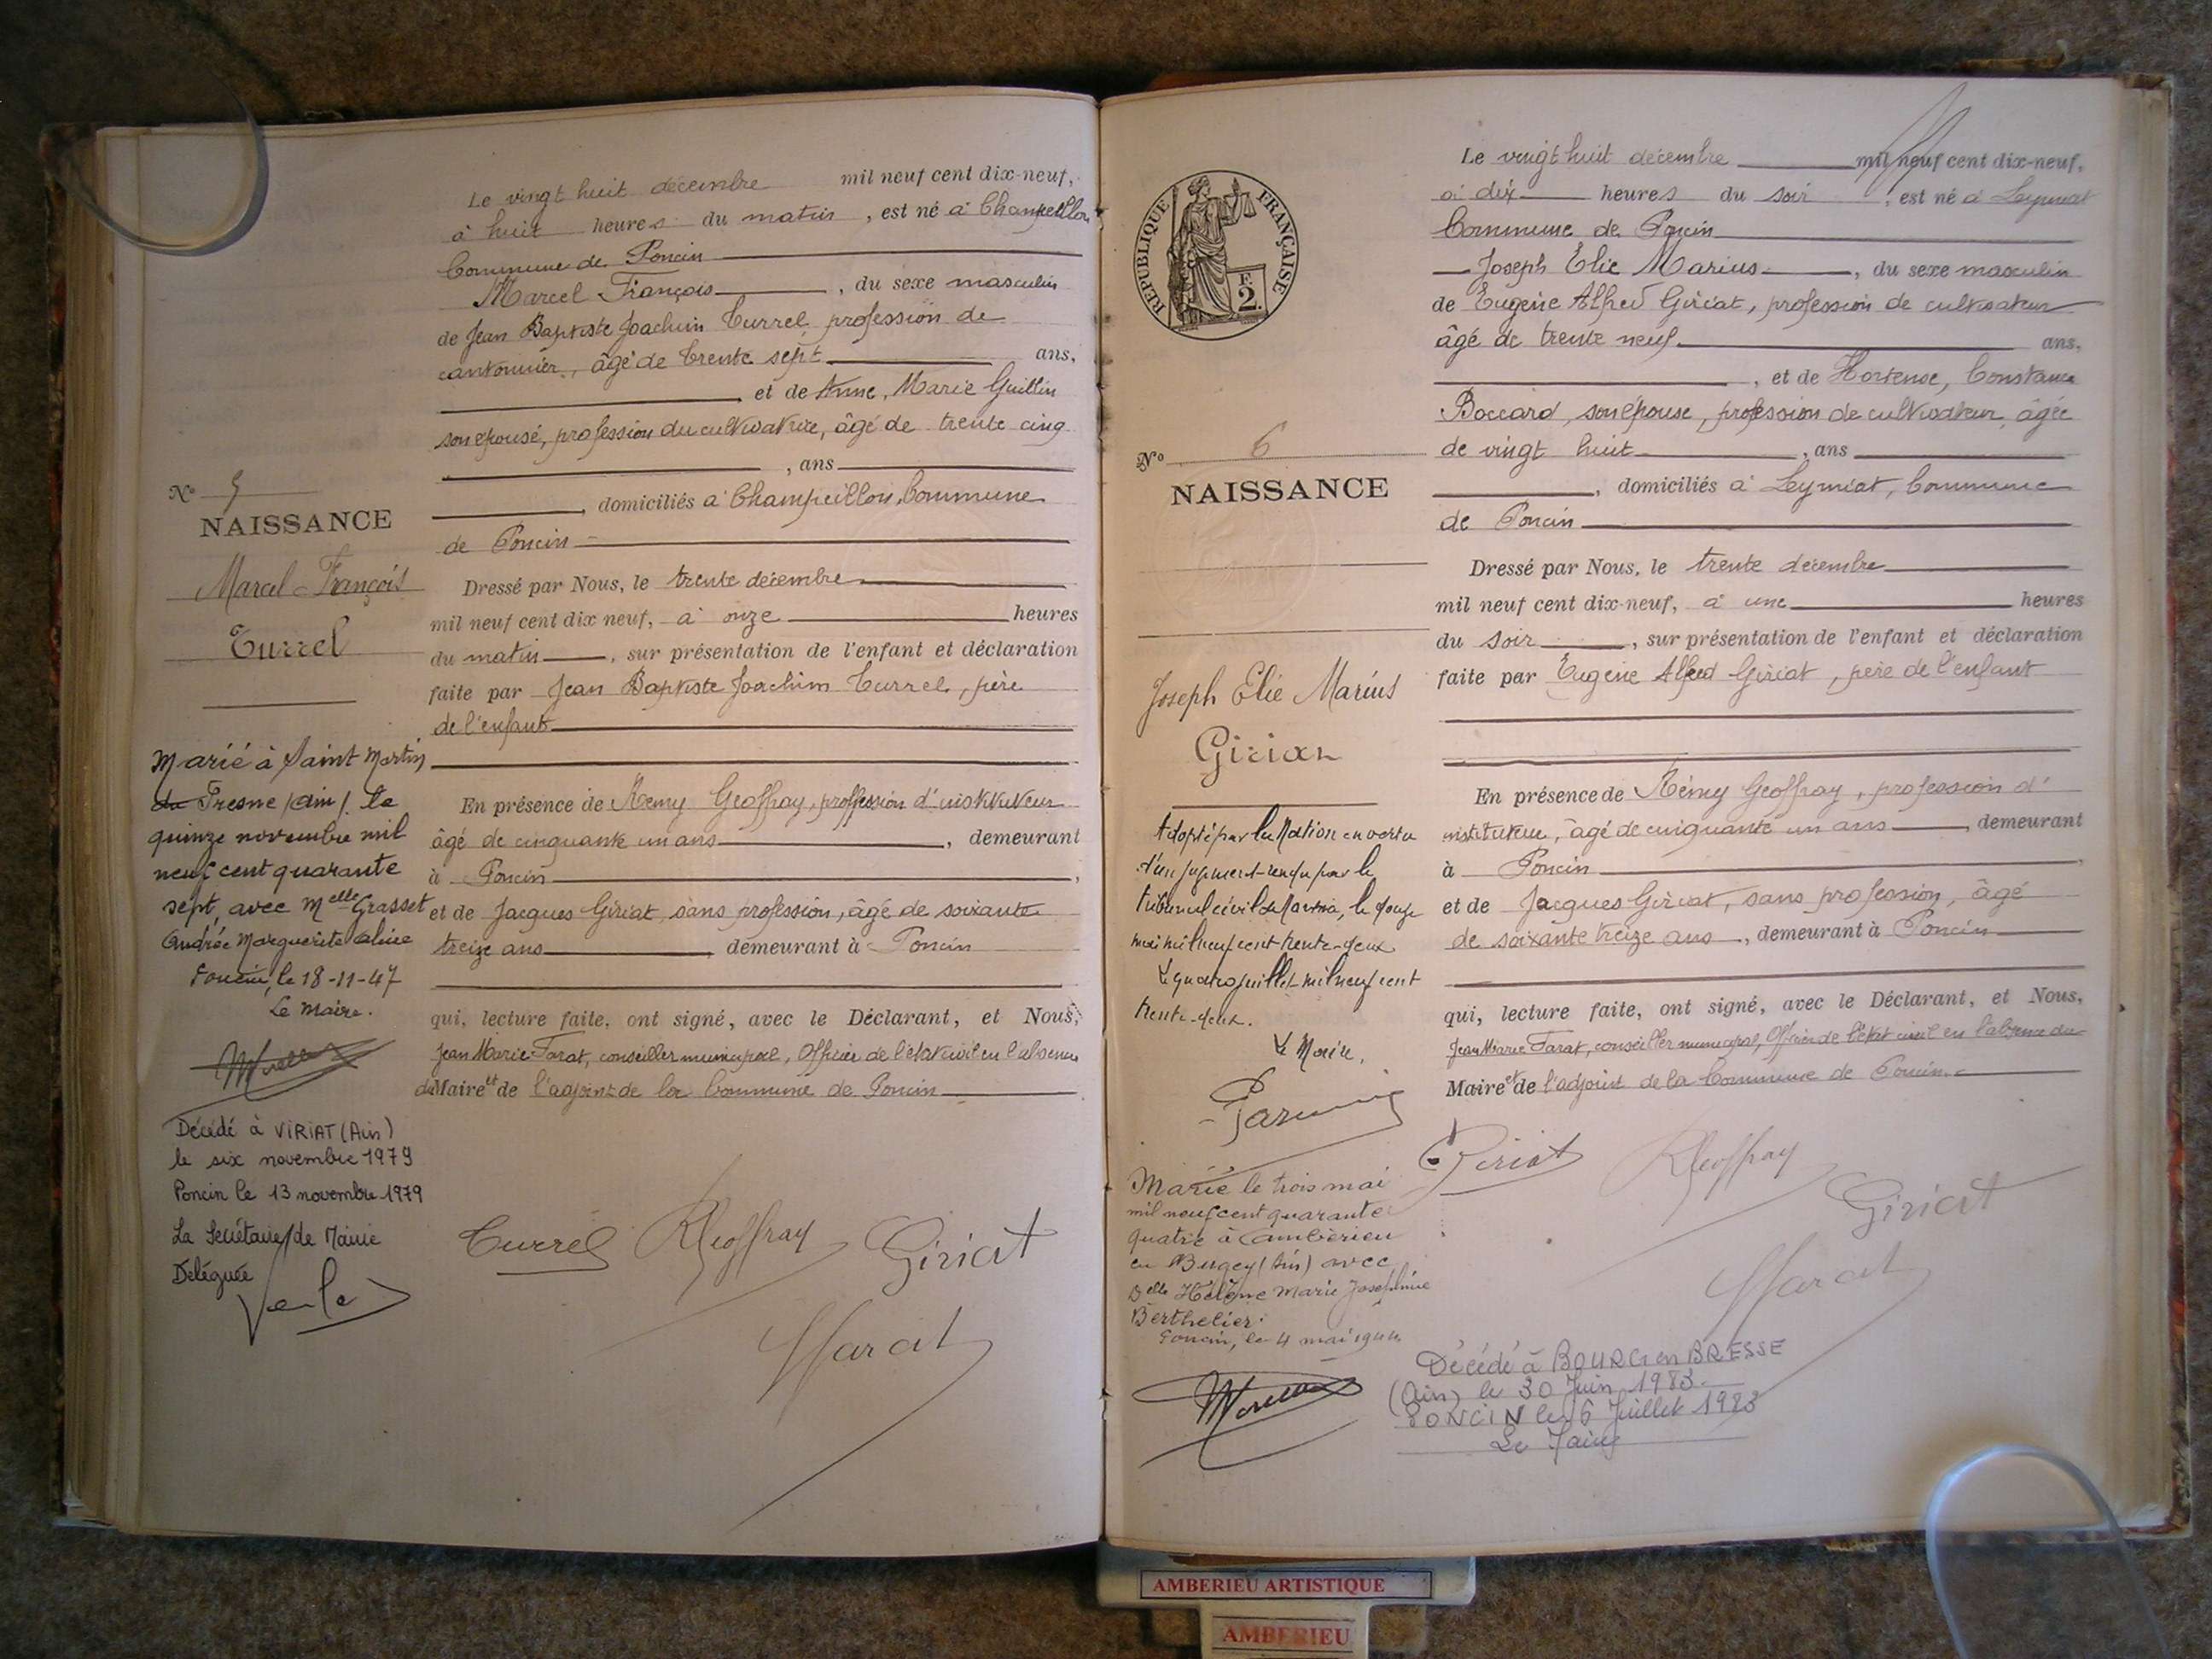 Le vingt huit décembre mil neuf cent dix-neuf,
à huit heures du matin, est né à Champeillon
Commune de Poncin
Marcel François, du sexe masculin
de Jean Baptiste Joachim Turrel, profession de
cantonnier, âgé de trente sept ans,
et de Anne, Marie Guillin
son épouse, profession du cultivatrice, âgé de trente cinq
, ans
, domiciliés à Champeillon, Commune
de Poncin
Dressé par Nous, le trente décembre
mil neuf cent dix neuf, à onze heures
du matin, sur présentation de l'enfant et déclaration
faite par Jean Baptiste Joachim Turrel, père
de l'enfant
En présence de Rémy Geoffray, proffession d'instituteur
âgé de cinquante un ans, demeurant
à Poncin,
et de Jacques Giriat, sans profession, âgé de soixante
treize ans, demeurant à Poncin
qui, lecture faite, ont signé, avec le Déclarant, et Nous,
Jean Marie Farat, conseiller municipal, Officier de l'état civil en l'absence
du Maire et de l'adjoint de la Commune de Poncin
Turrel RGeoffray Giriat
Farat
No 5
NAISSANCE
Marcel-François
Turrel
Marié à Saint Martin
du Fresne (Ain) le
quinze novembre mil
neuf cent quarante
sept, avec Melle Grasset
Andrée Marguerite Aline
Poncin, le 18-11-47
Le Maire.
Décédé à VIRIAT (Ain)
le six novembre 1979
Poncin le 13 novembre 1979
La Secrétaire de Mairie
Déléguée
RÉPUBLIQUE FRANÇAISE
F.
2.
No 6
NAISSANCE
Joseph Elie Marius
Giriat
Adopté par la Nation en vertu
d'un jugement rendu par le
tribunal civil de, le douze
mai mil neuf cent trente-deux
Le quatre juillet mil neuf cent
trente-deux.
Le Maire,
Marié le trois mai
mil neuf cent quarante
quatre à Ambérieu
en Bugey (Ain) avec
Delle Hélène Marie Joséphine
Berthelier.
Poncin, le 4 mai 1944
Le vingt huit décembre mil neuf cent dix-neuf,
à dix heures du soir, est né à Leymiat
Commune de Poncin
Joseph Elie Marius, du sexe masculin
de Eugène Alfred Giriat, profession de cultivateur
âgé de trente neuf ans,
, et de Hortense, Constance
Boccard, son épouse, profession de cultivateur, âgée
de vingt huit, ans
, domiciliés à Leymiat, Commune
de Poncin
Dressé par Nous, le trente décembre
mil neuf cent dix-neuf, à une heures
du soir, sur présentation de l'enfant et déclaration
faite par Eugène Alfred Giriat, père de l'enfant
En présence de Rémy Geoffray, profession d'
instituteur, âgé de cinquante un ans, demeurant
à Poncin,
et de Jacques Giriat, sans profession, âgé
de soixante treize ans, demeurant à Poncin
qui, lecture faite, ont signé, avec le Déclarant, et Nous,
Jean Marie Farat, conseiller municipal, Officier de l'état civil en l'absence du
Maire et de l'adjoint de la Commune de Poncin
Giriat RGeoffray
Giriat
Farat
Décédé à BOURG en BRESSE
(Ain) le 30 Juin 1983.
PONCIN le 6 Juillet 1983
Le Maire
AMBERIEU ARTISTIQUE
AMBERIEU